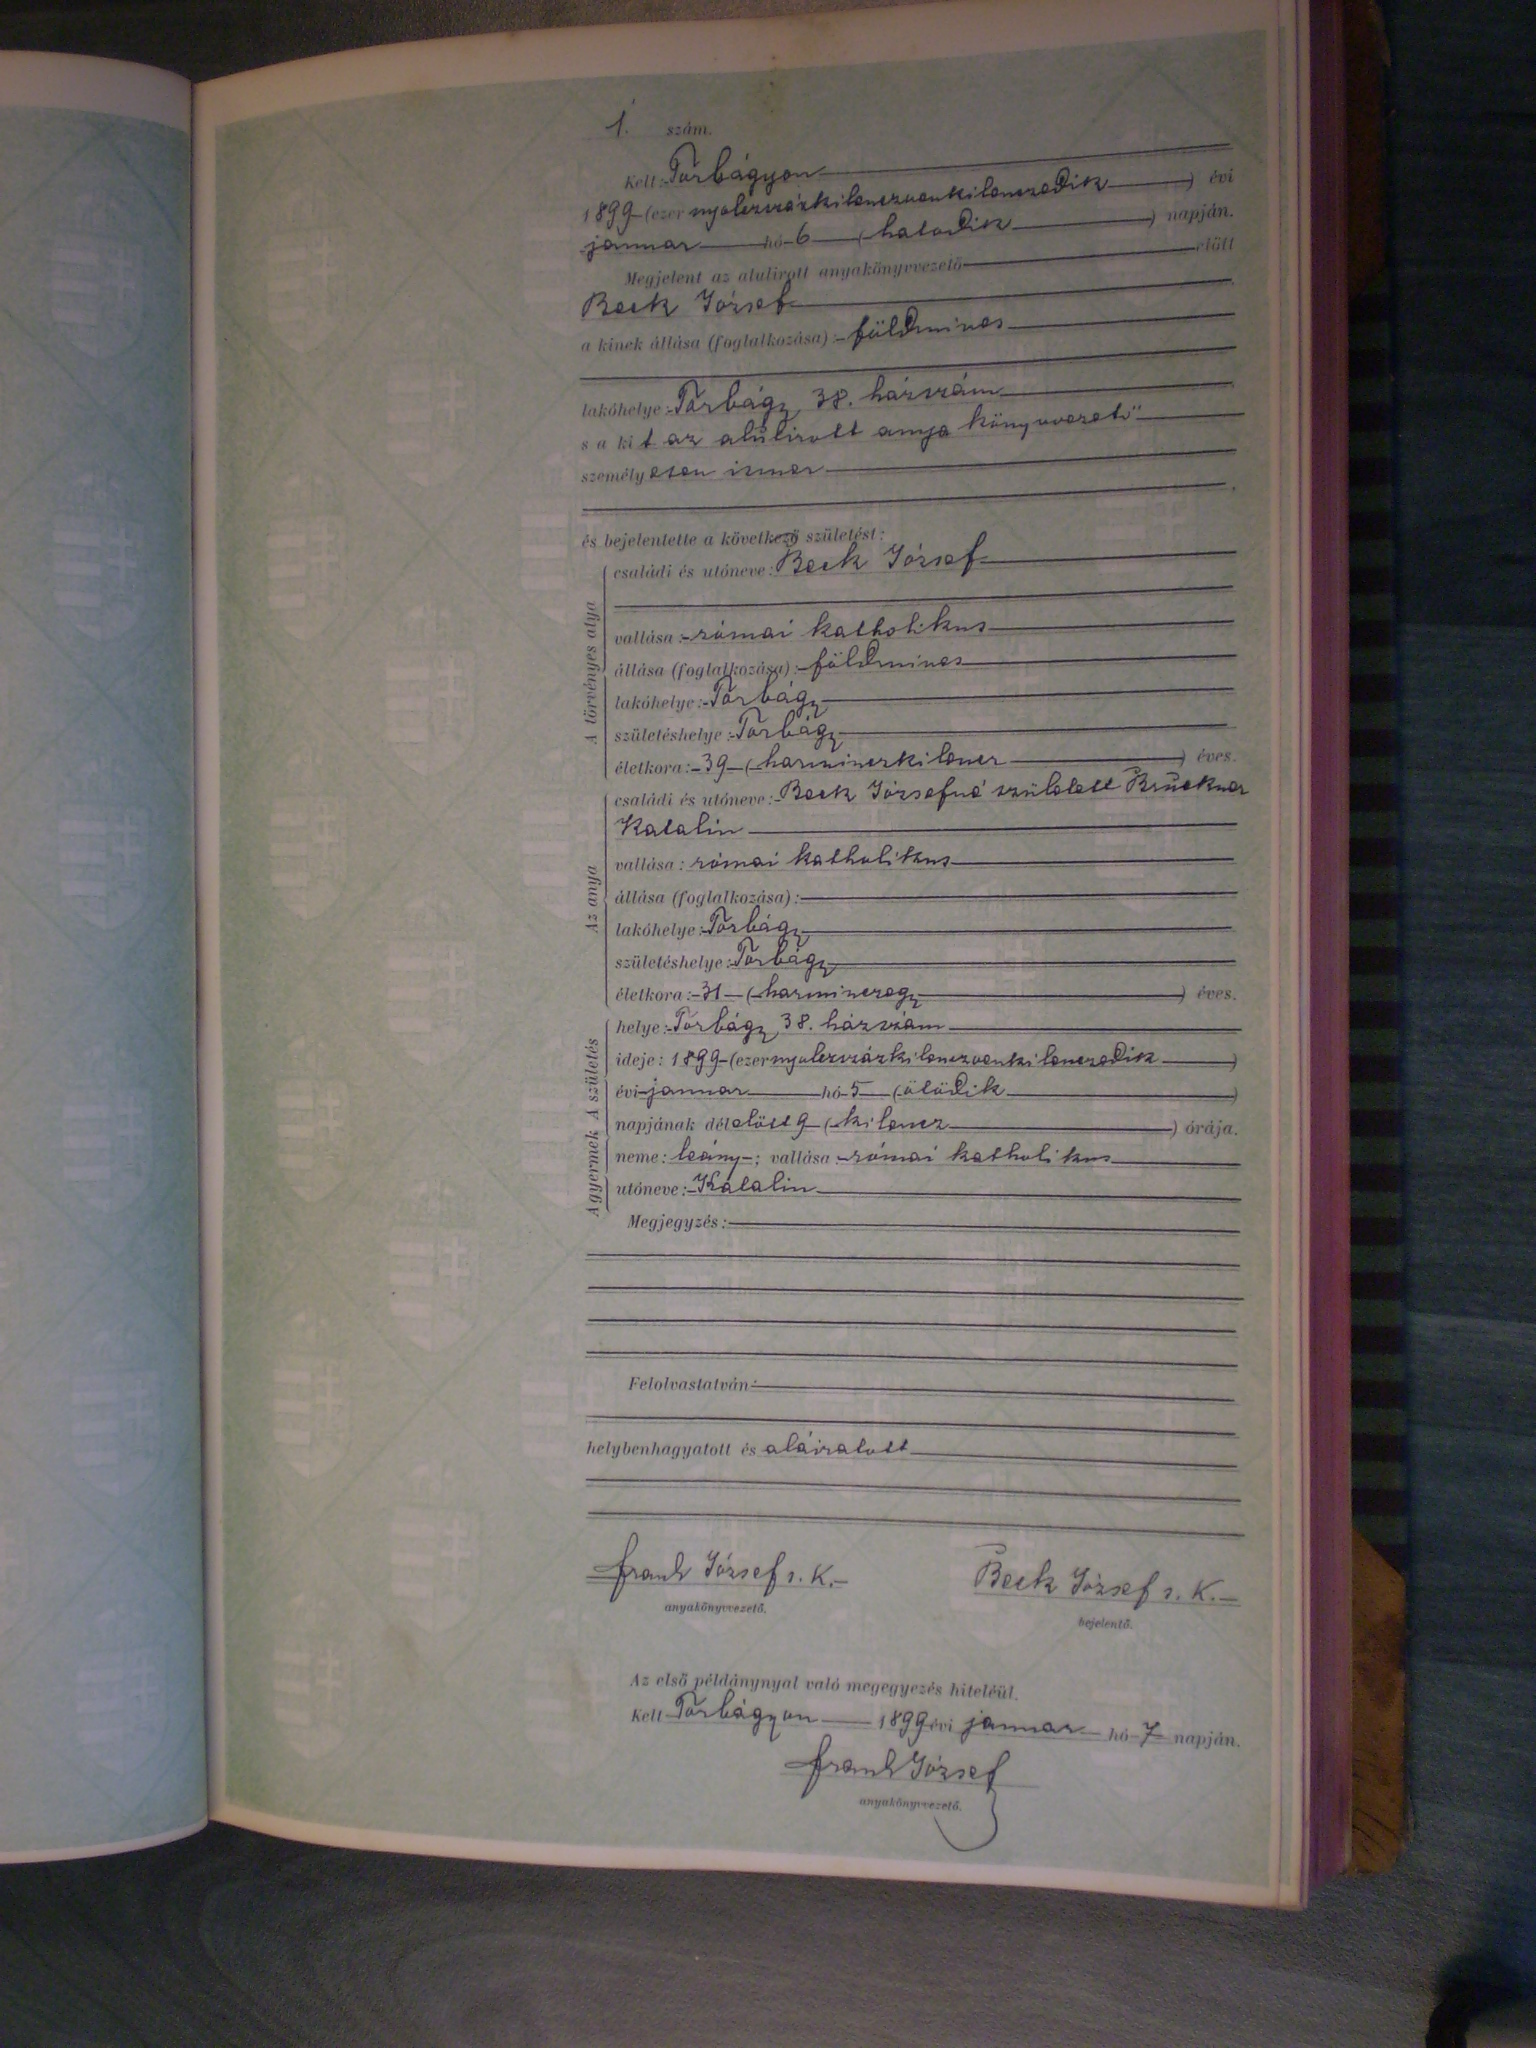 1. szám.
Kelt: Torbágyon
1899 (ezer nyolczszázkilenczvenkilenczedik) évi
januar hó 6 (hatodik) napján.
Megjelent az alulirott anyakönyvvezető előtt
Beck József
a kinek állása (foglalkozása): földmives
lakóhelye: Torbágy 38. házszám
s a kit az alulirott anyakönyvvezető
személyesen ismer
és bejelentette a következő születést:
A törvényes atya
családi és utóneve: Beck József
vallása: római katholikus
állása (foglalkozása): földmives
lakóhelye: Torbágy
születéshelye: Torbágy
életkora: 39 (harminczkilencz) éves.
Az anya
családi és utóneve: Beck Józsefné született Bruckner
Katalin
vallása: római katholikus
állása (foglalkozása):
lakóhelye: Torbágy
születéshelye: Torbágy
életkora: 31 (harminczegy) éves.
A születés
helye: Torbágy 38. házszám
ideje: 1899 (ezer nyolczszázkilenczvenkilenczedik)
évi januar hó 5 (ötödik)
napjának délelőtt 9 (kilencz) órája.
A gyermek
neme: leány; vallása: római katholikus
utóneve: Katalin
Megjegyzés:
Felolvastatván:
helybenhagyatott és aláiratott
Frank József s. k.
anyakönyvvezető.
Beck József s. k.
bejelentő.
Az első példánynyal való megegyezés hiteléül.
Kelt Torbágyon 1899 évi januar hó 7 napján.
Frank József
anyakönyvvezető.